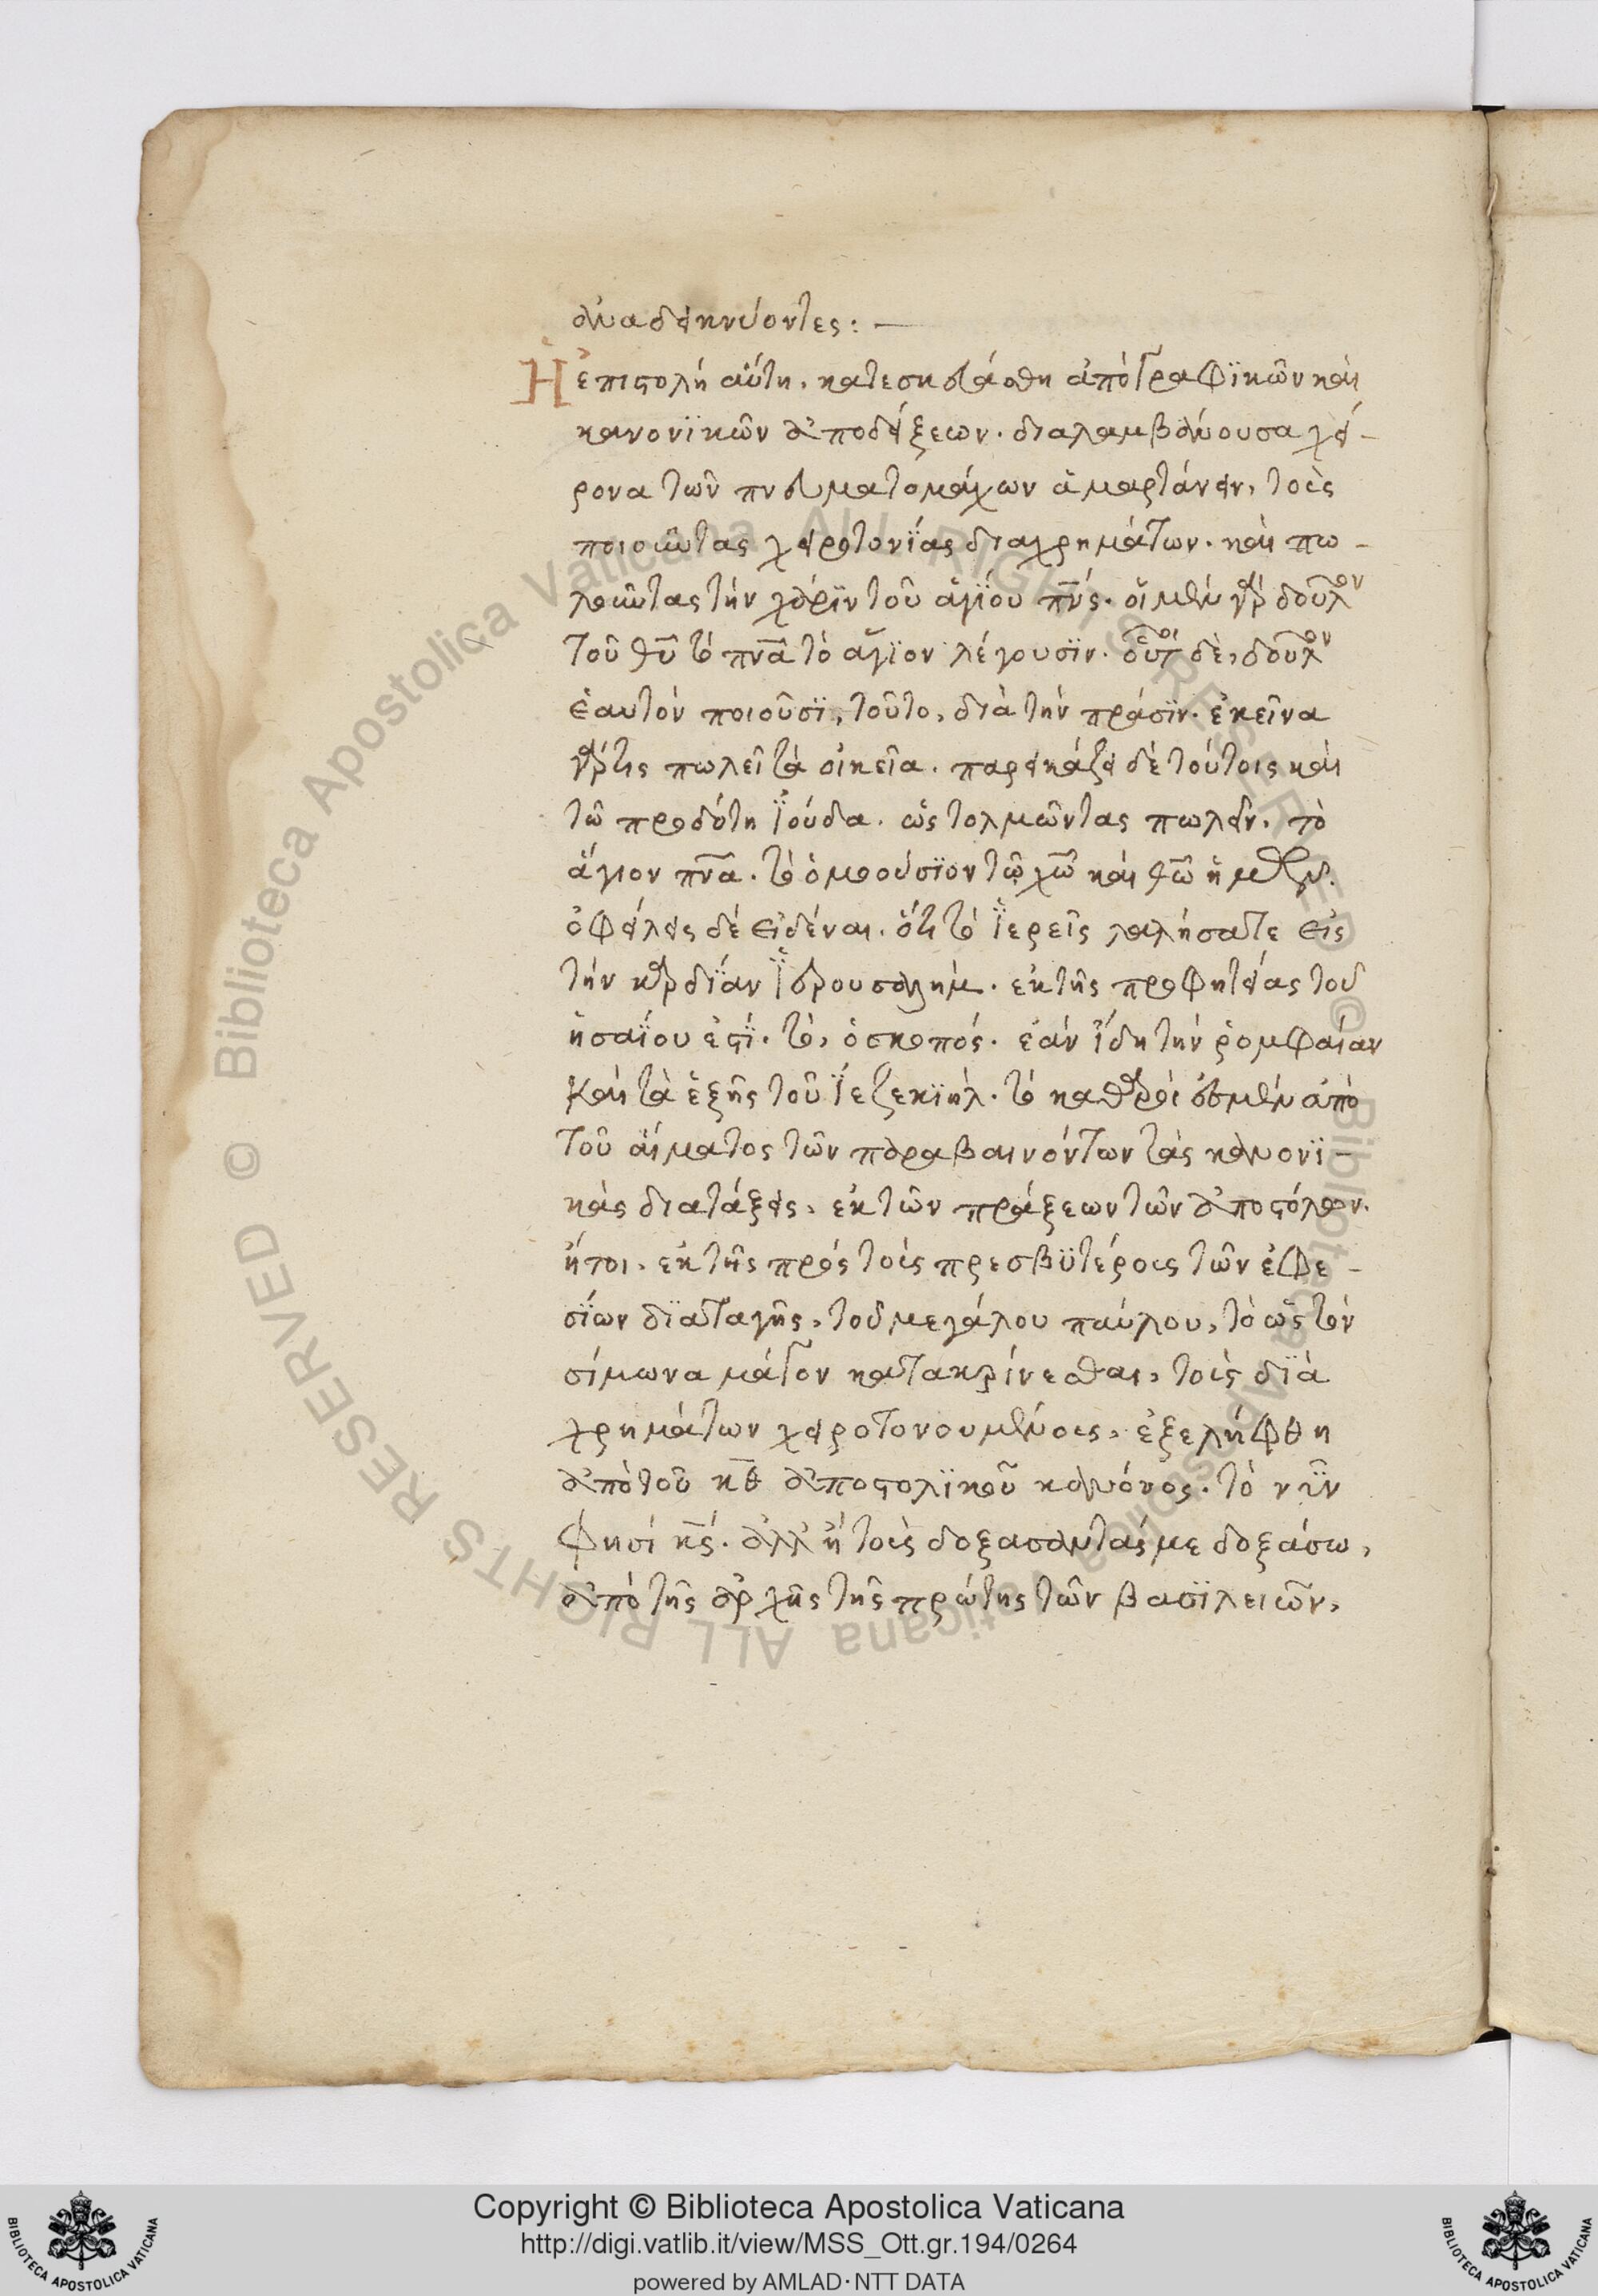 ἀναδεικνύοντες : —
Ἡ ἐπιστολὴ αὕτη. κατεσκευάσθη ἀπὸ γραφϊκῶν καὶ
κανονϊκῶν ἀποδείξεων. διαλαμβάνουσα χεί-
ρονα τῶν πνευματομάχων ἁμαρτάνειν, τοὺς
ποιοῦντας χειροτονΐας διαχρημάτων. καὶ πω-
λοῦντας τὴν χάρϊν τοῦ ἁγΐου πν̅ς. οἱ μὲν γὰρ δοῦλον
τοῦ θυ̅ τὸ πνα̅ τὸ ἅγϊον λέγουσϊν. οὗτοι δὲ, δοῦλον
ἑαυτὸν ποιοῦσϊ, τοῦτο, διὰ τὴν πρᾶσϊν. ἐκεῖνα
γάρ τις πωλεῖ τὰ οἰκεῖα. παρεικάζει δὲ τούτοις καὶ
τῶ προδότη Ϊούδα. ὡς τολμῶντας πωλεῖν. τὸ
ἅγιον πνα̅. τὸ ὁμοούσϊον τῷ χω̅ καὶ θω̅ ἡμῶν.
ὀφείλεις δὲ εἰδέναι. ὅτι τὸ ἱερεῖς λαλήσατε εἰς
τὴν καρδΐαν Ϊερουσαλὴμ. ἐκ τῆς προφητείας τοῦ
ἠσαΐου ἐστΐ. τὸ, ὁ σκοπός. ἐάν ἴδη τὴν ῥομφαίαν
καὶ τὰ ἑξῆς τοῦ Ϊεζεκϊήλ. τὸ καθαροί ἐσμὲν ἀπὸ
τοῦ αἵματος τῶν παραβαινόντων τὰς κανονϊ-
κὰς διατάξεις, ἐκ τῶν πράξεων τῶν ἀποστόλων.
ἤτοι. ἐκ τῆς πρὸς τοὺς πρεσβϋτέρους τῶν ἐφε-
σΐων δϊαταγῆς, τοῦ μεγάλου παύλου, τὸ ὡς τὸν
σίμωνα μάγον κατακρίνεσθαι, τοὺς δϊὰ
χρημάτων χειροτονουμένους, ἐξελήφθη
ἀπὸ τοῦ κθ̅ ἀποστολϊκοῦ κανόνος. τὸ νῦν
φησί κς̅. ἀλλ' ἢ τοὺς δοξάσαντάς με δοξάσω,
ἀπὸ τῆς ἀρχῆς τῆς πρώτης τῶν βασϊλειῶν,
Copyright © Biblioteca Apostolica Vaticana
http://digi.vatlib.it/view/MSS_Ott.gr.194/0264
powered by AMLAD·NTT DATA
BIBLIOTECA APOSTOLICA VATICANA
BIBLIOTECA APOSTOLICA VATICANA
© Biblioteca Apostolica Vaticana ALL RIGHTS RESERVED
© Biblioteca Apostolica Vaticana ALL RIGHTS RESERVED